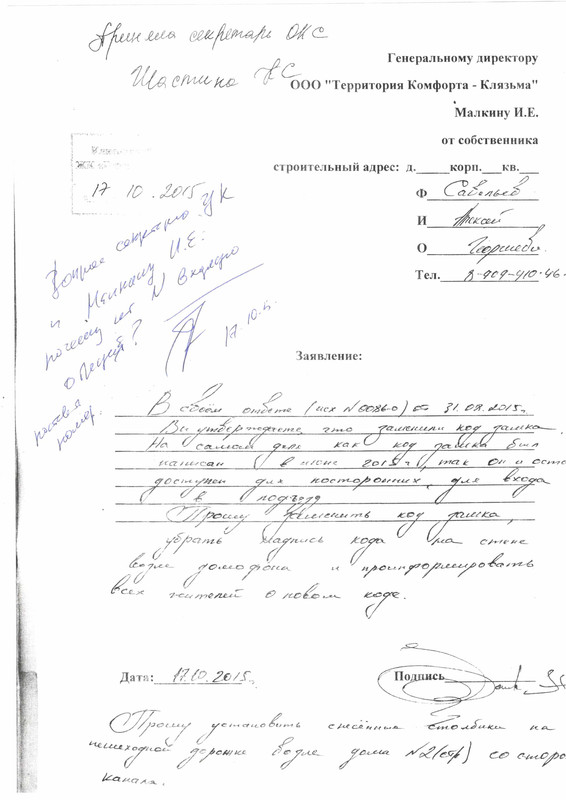 Приняла секретарь ОКС
Шастина КС
Генеральному директору
ООО "Территория Комфорта - Клязьма"
Малкину И.Е.
от собственника
строительный адрес: д.____корп.___кв.___
17 10 . 2015
Ф Савельев
И
О
Тел. 8-909-910-46-
Вопрос секретарю УК
и Малкину И.Е.
почему нет N входящего
17.10.15.
номер.
Заявление:
В своём ответе (исх N00860) от 31.08.2015г.
Вы утверждаете, что заменили код замка.
На самом деле как код замка был
написан в июне 2015г, так он и оста
доступен для посторонних, для входа
в подъезд
Прошу заменить код замка,
убрать надпись кода на стене
возле домофона и проинформировать
всех жителей о новом коде.
Дата: 17.10.2015г.
Подпись
Прошу установить снесённые столбики на
пешеходной дорожке возле дома №2(стр) со сторо
канала.